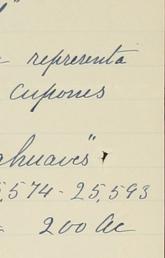 "
representa
cupones
huaves"
,574-25,593
200 Ac